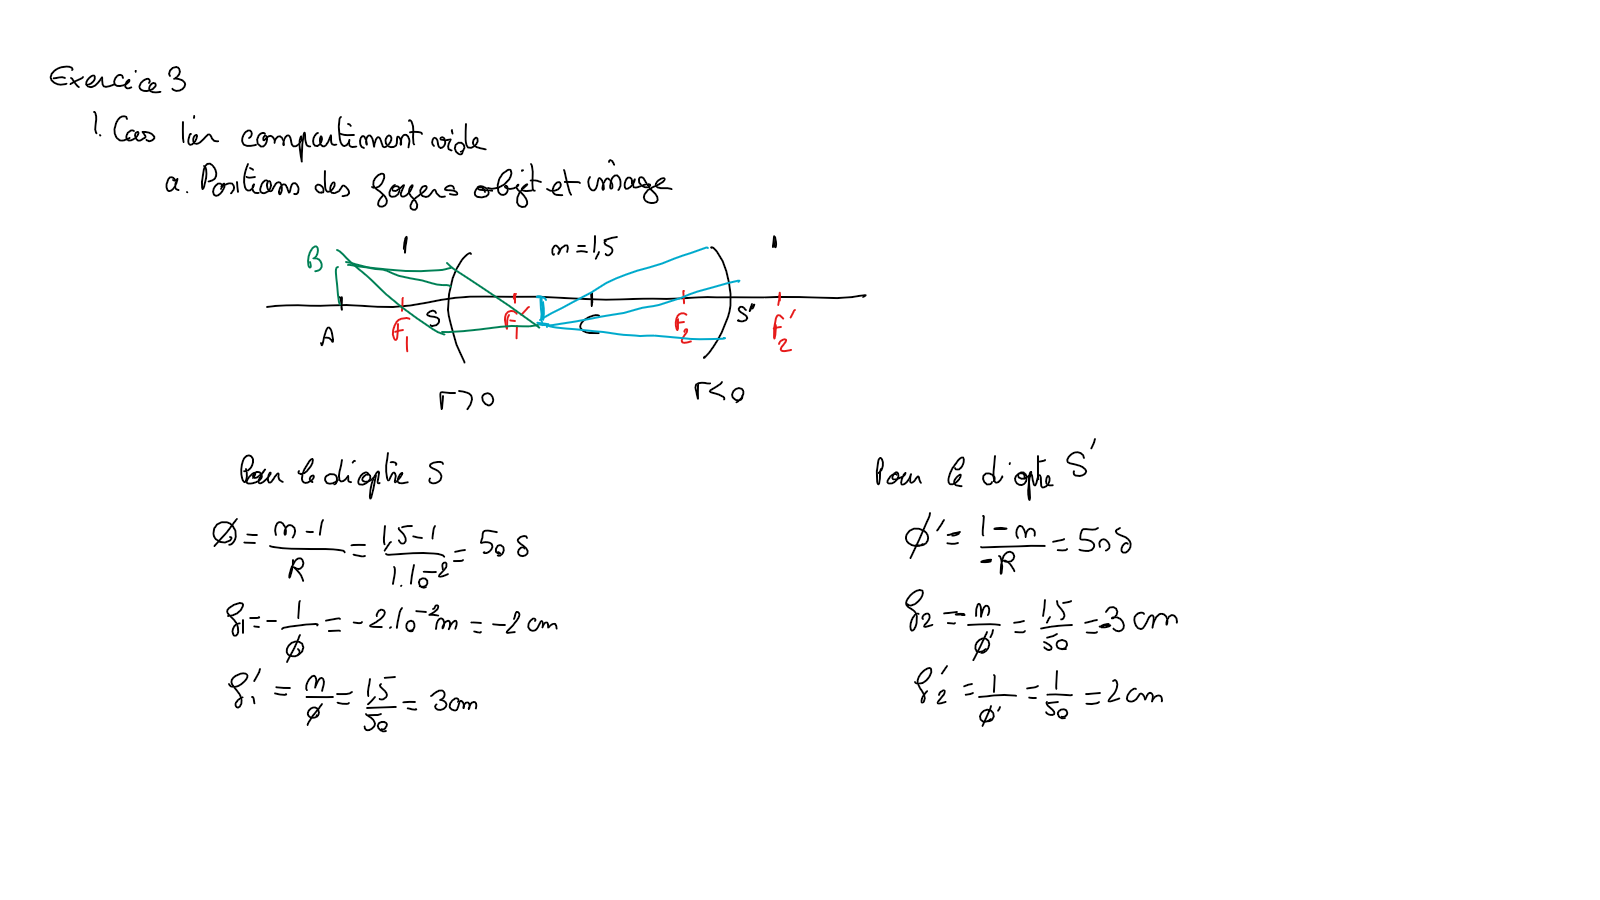 Exercice 3
1. Cas 1ier compartiment vide
a. Positions des foyers objet et image
B 1 n = 1,5 1
A F1 S F1' C F2 S' F2'
r > 0 r < 0
Pour le dioptre S
Φ = (n - 1)/R = (1,5 - 1)/(1.10^-2) = 50 δ
f1 = - 1/Φ = - 2.10^-2 m = - 2 cm
f1' = n/Φ = 1,5/50 = 3 cm
Pour le dioptre S'
Φ' = (1 - n)/(-R) = 50 δ
f2 = - n/Φ' = 1,5/50 = -3 cm
f2' = 1/Φ' = 1/50 = 2 cm